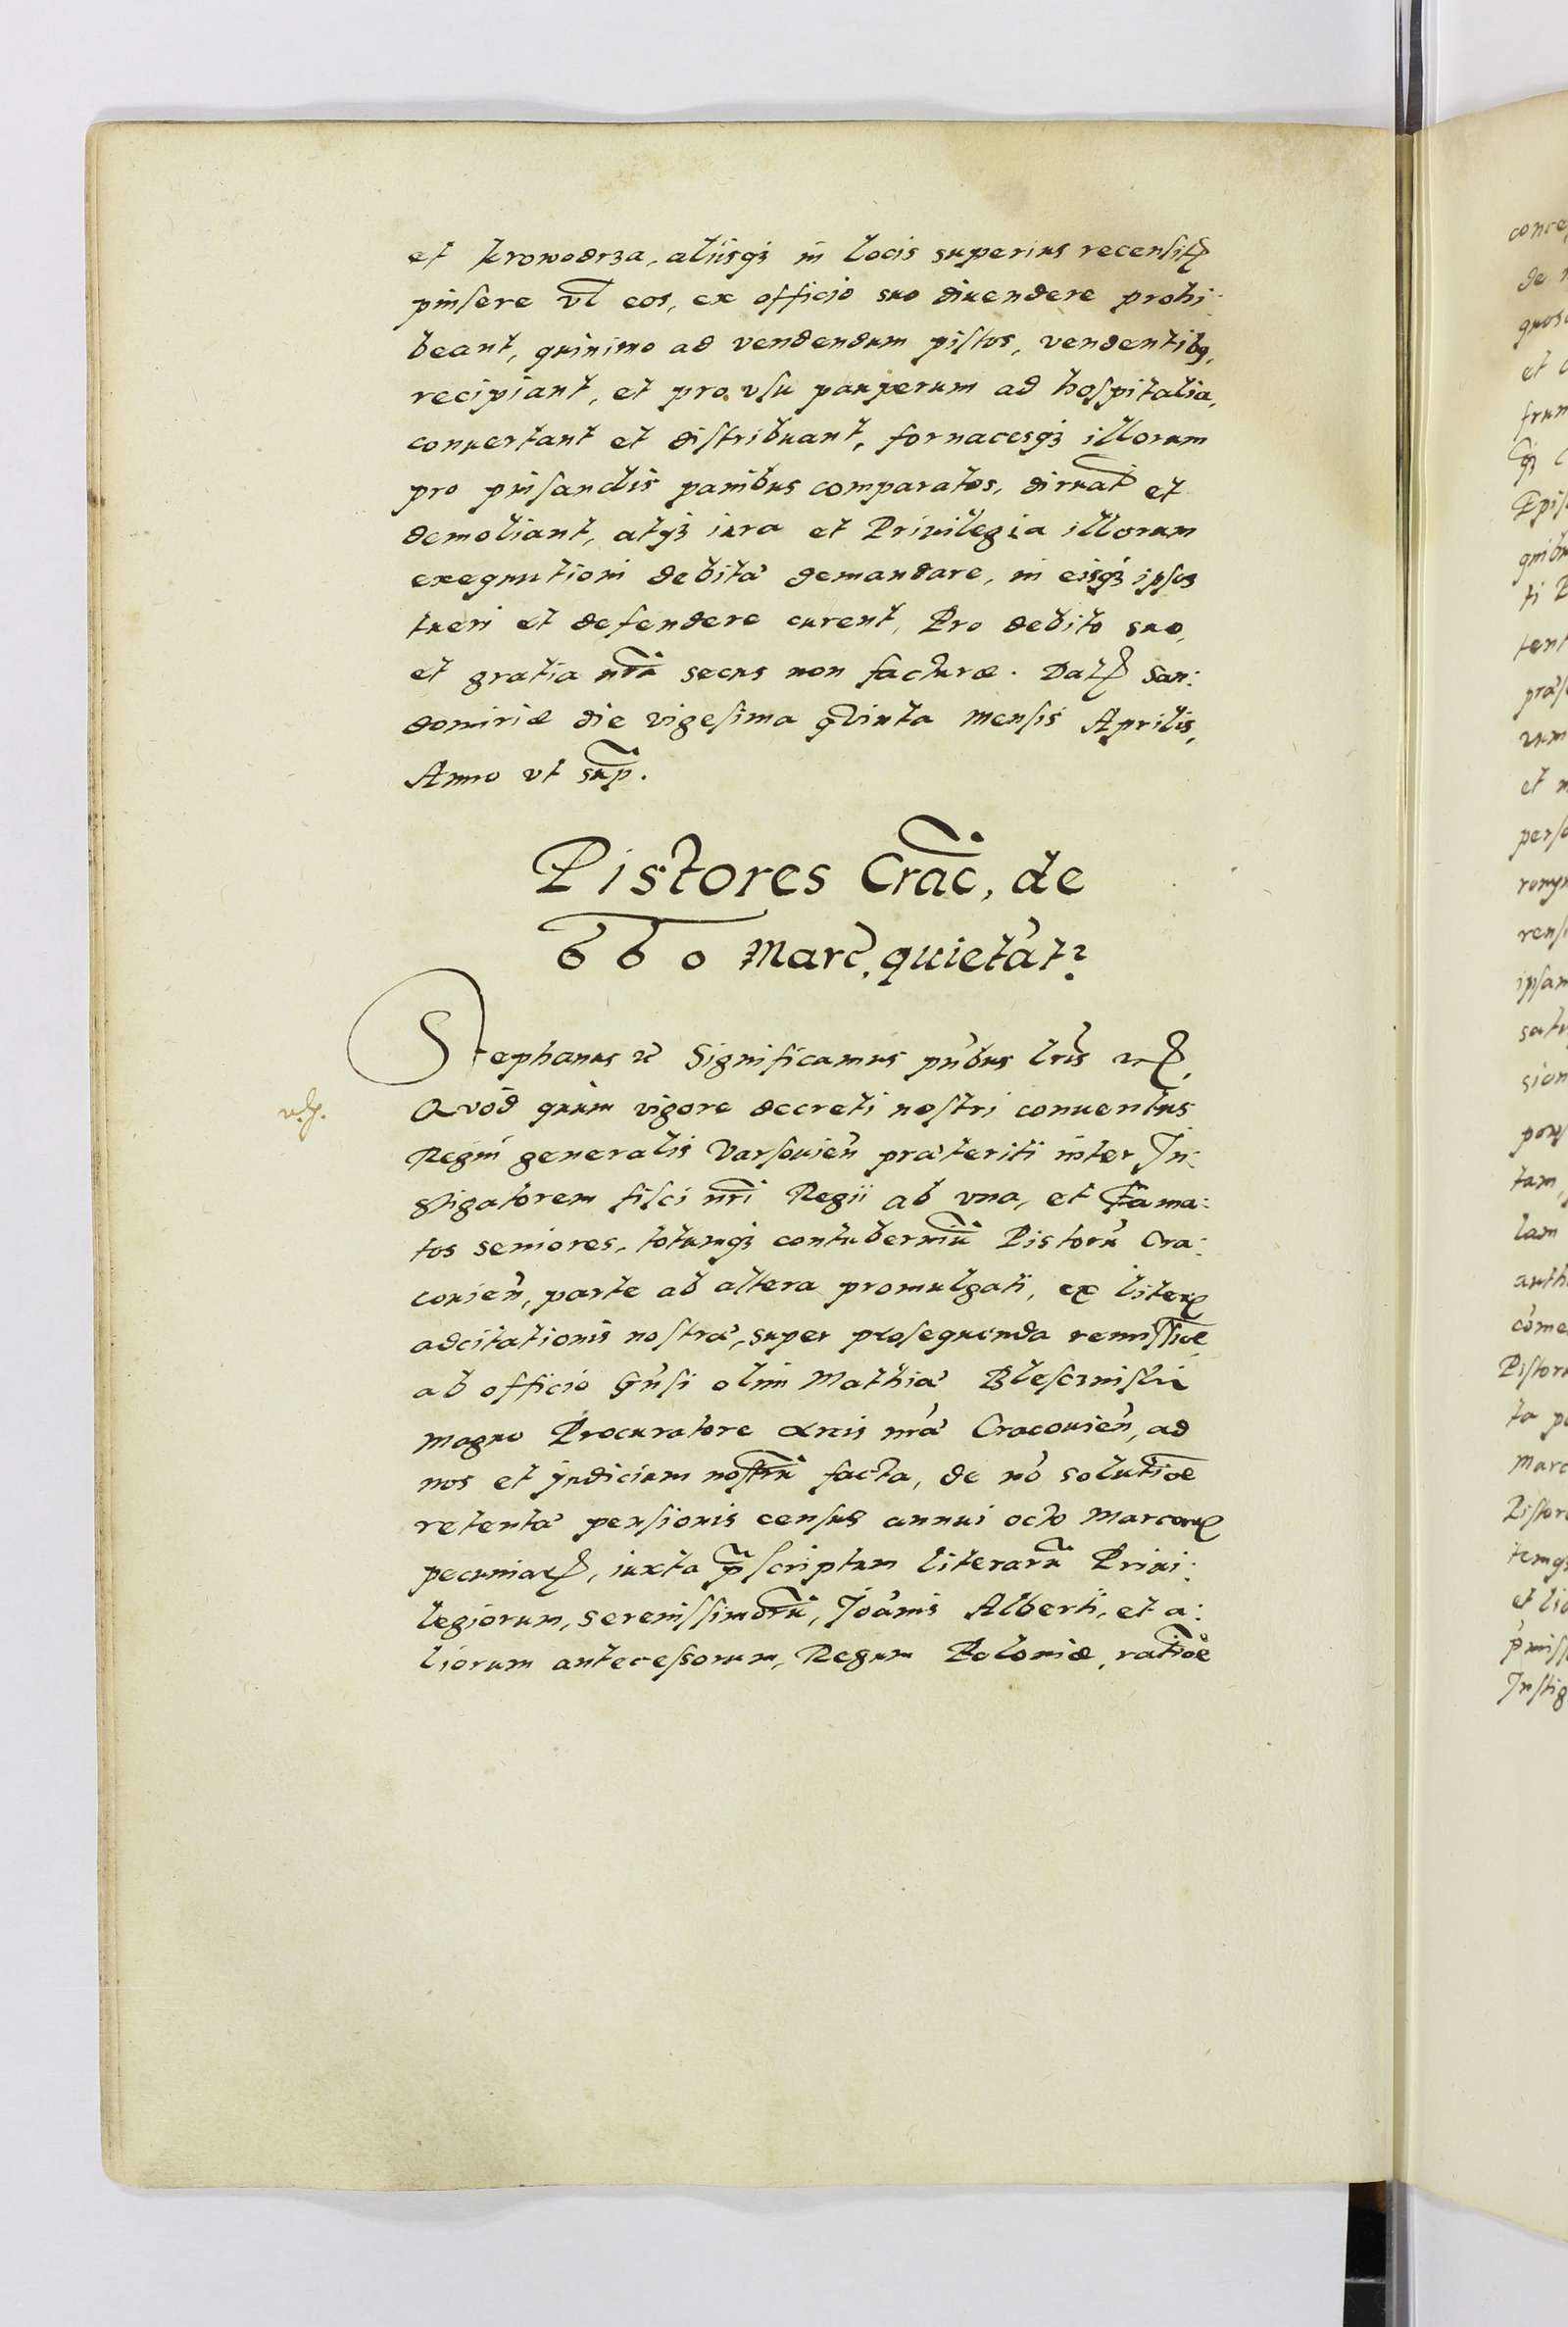 et krowodrza, aliisqꝫ in locis superius recensitꝭ
pinsere vl̄ eos, ex officio suo diuendere prohi:
beant, quinimo ad vendendum pistos, vendentibꝫ,
recipiant, et pro vsu pauperum ad hospitalia,
conuertant et distribuant, fornacesqꝫ illorum
pro pinsandis panibus comparatos, diruāt et
demoliant, atqꝫ iura et Priuilegia illorum
exequutioni debita demandare, in eisqꝫ ipsos
tueri et defendere curent, Pro debito suo,
et gratia nr̃a secus non facturæ. Datꝭ San:
domiriæ die vigesima qvinta mensis Aprilis,
Anno vt sup̃.
Pistores Crac̃, de
660 Marc, quietat?
Stephanus ꝛc Significamus pn̄bus lr̄is ꝛꝭ,
Qvod quum vigore decreti nostri conuentus
Regni generalis Varsouien̄ præteriti inter In:
stigatorem fisci nr̃i Regii ab vna, et Fama:
tos seniores, totumqꝫ contuberniũ Pistorū Cra:
couien̄, parte ab altera promulgati, ex literꝭ
adcitationis nostra, super prosequenda remissiōe
ab officio Gn̄si olim Mathia
Magno Procuratore arcis nr̄a Cracouien̄, ad
nos et judicium nostrũ facta, de nō solutiōe
retenta pensionis census annui octo Marcarꝝ
pecuniarꝝ, iuxta p̃scriptum literarũ Priui:
legiorum, serenissimorũ, Joānis Alberti, et a:
liorum antecessorum, Regum Poloniæ, ratiōe